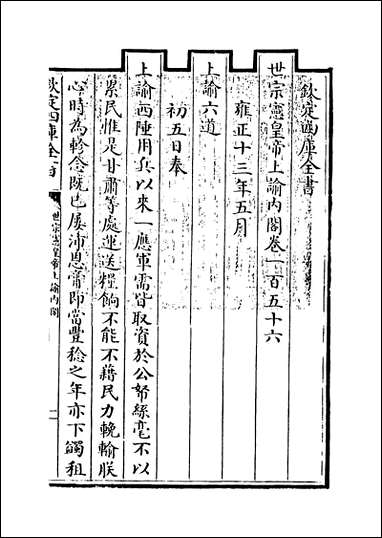 欽定四庫全書
世宗憲皇帝上諭內閣卷一百五十六
雍正十三年五月
上諭六道
初五日奉
上諭西陲用兵以來一應軍需皆取資於公帑絲毫不以
累民惟是甘肅等處運送糧餉不能不藉民力輓輸朕
心時為軫念既已屢沛恩膏即當豐稔之年亦下蠲租
欽定四庫全書
世宗憲皇帝上諭內閣